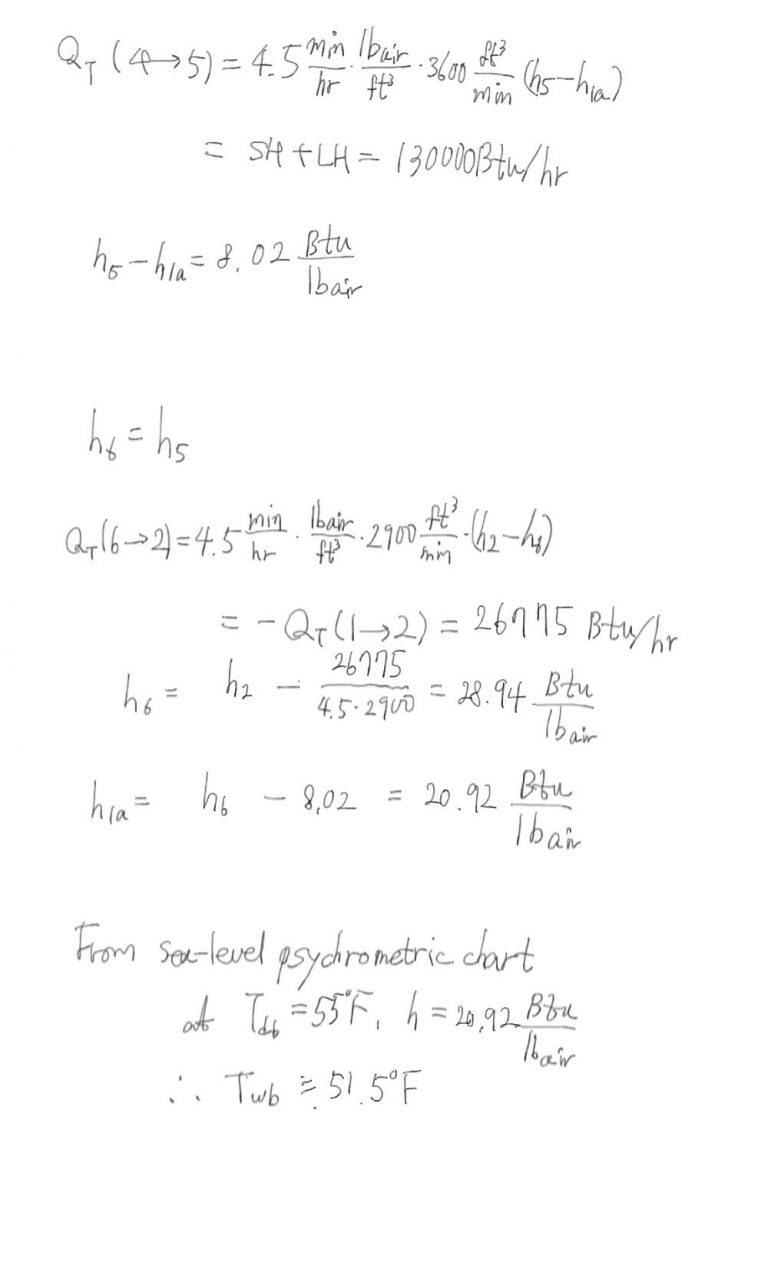 Q_T (4→5) = 4.5 min/hr · lbair/ft³ · 3600 ft³/min (h5-h1a)
= SH + LH = 130000Btu/hr
h5 - h1a = 8.02 Btu/lbair
h6 = h5
Q_T(6→2) = 4.5 min/hr · lbair/ft³ · 2900 ft³/min · (h2-h6)
= - Q_T(1→2) = 26775 Btu/hr
h6 = h2 - 26775/4.5·2900 = 28.94 Btu/lbair
h1a = h6 - 8.02 = 20.92 Btu/lbair
From sea-level psychrometric chart
at Tdb = 55°F, h = 20.92 Btu/lbair
∴ Twb ≒ 51.5°F